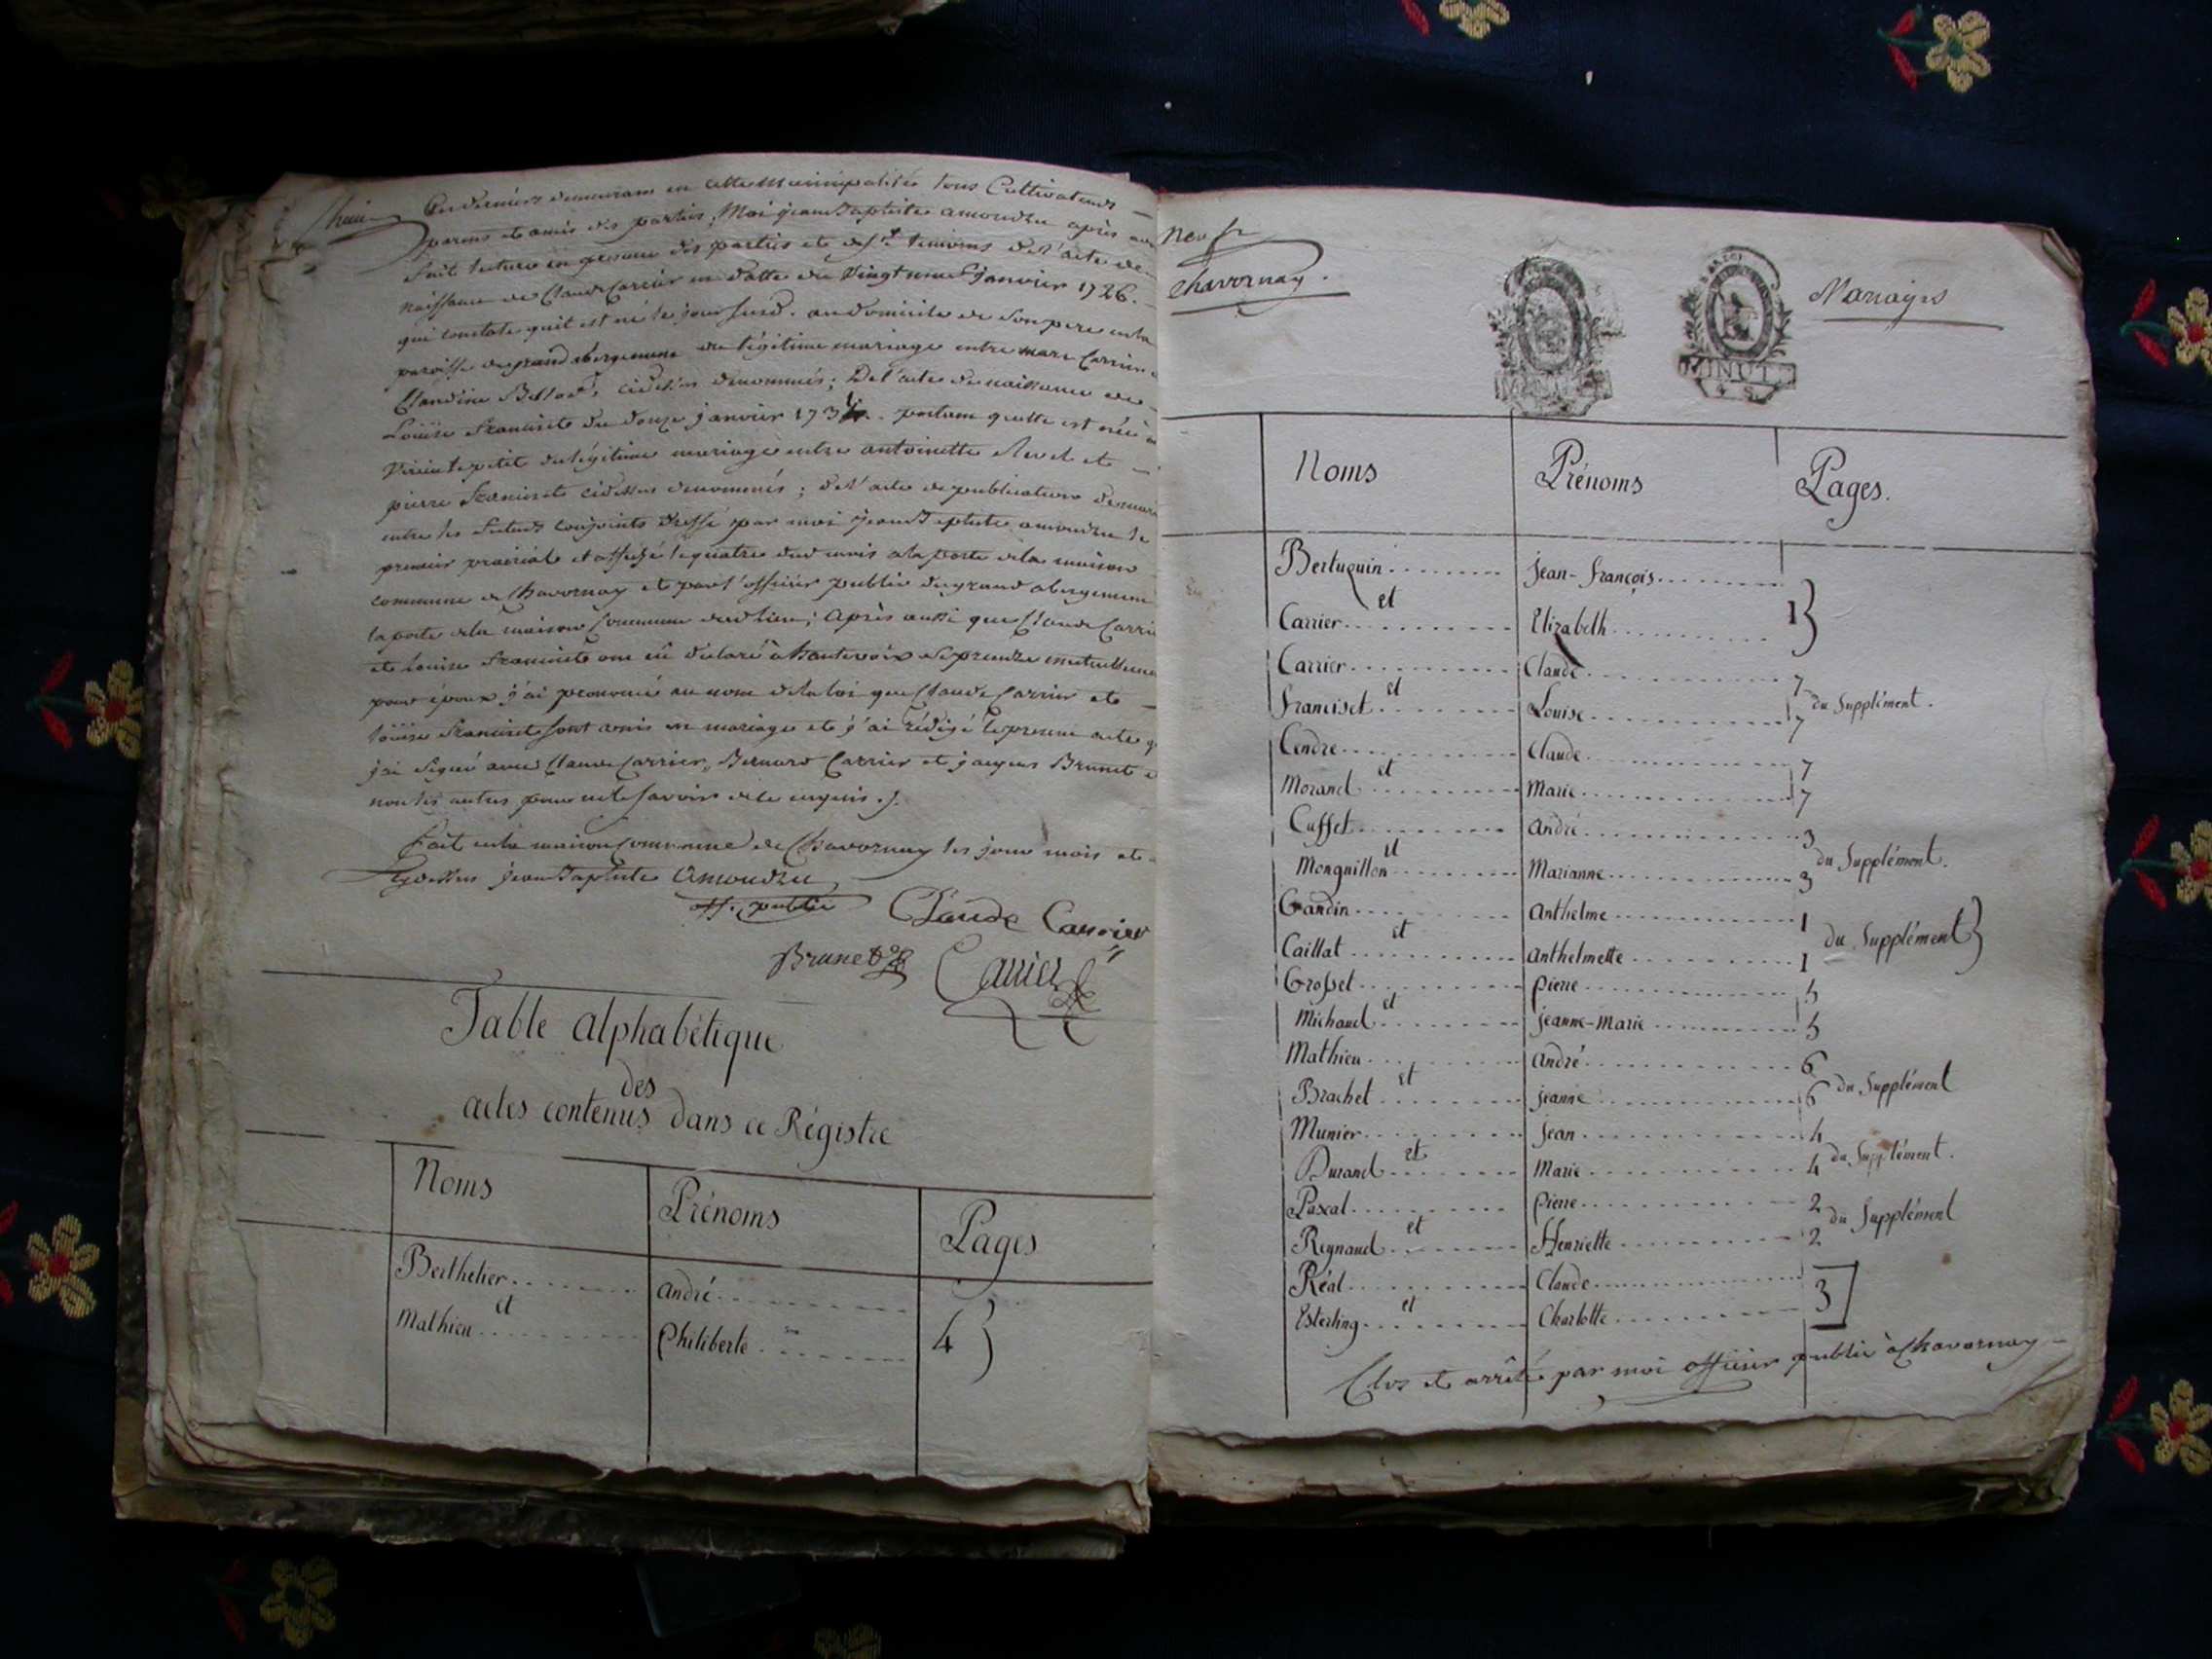 huit
Ces derniers demeurans en cette Municipalité tous Cultivateurs
parens et amis des parties, Moi jean Baptiste amoudru après
fait lecture en presence des parties et des.d temoins de l'acte de
naissance de Claude Carrier en datte du Vingt janvier 1726.
qui constate qu'il est né le jour susd. au domicile de son pere en la
paroisse du grand abergement du légitime mariage entre marc Carrier
Claudine cidessus denommés; De l'acte de naissance de
Louise Franciset du douze janvier 173 portant qu'elle est née
Virieu le petit du légitime mariage entre antoinette et
pierre Franciset cidessus denommés; de l'acte de publication
entre les futurs conjoints dressé par moi jean Baptiste amoudru le
premier prairial et affiché le quatre dud mois a la porte de la maison
commune de Chavornay et par l'officier public du grand abergement
la porte de la maison Commune dud lieu; Après aussi que Claude
et Louise Franciset ont eû déclaré à hautevoix se prendre mutuellement
pour époux j'ai prononcé au nom de la loi que Claude Carrier et
Loüise Franciset sont unis en mariage et j'ai rédigé le present acte
j'ai signé avec Claude Carrier, Bernard Carrier et jacques Brunet
non les autres pour ne le savoir de ce enquis.
Fait en la maison Commune de Chavornay les jour mois et
jean Baptiste Amoudru
off. public
Claude Carrier
Brunet
Carrier
Table alphabétique
des
actes contenus dans ce Régistre
Noms Prénoms Pages
Berthelier andré
et
Mathieu Philiberte 4
neuf
Chavornay.
Mariages
MINUT
Noms Prénoms Pages.
Bertuquin jean-françois
et
Carrier Elizabeth 1
Carrier Claude 7
et
Franciset Louise 7 du Supplément.
Cendre Claude 7
et
Morand Marie 7
Cuffet andré 3
et
Monguillon Marianne 3 du Supplément.
Gandin anthelme 1
et
Caillat anthelmette 1 du Supplément
Grosset pierre 5
et
Michaud jeanne-Marie 5
Mathieu andré 6
et
Brachet jeanne 6 du Supplément
Munier jean 4
et
Durand Marie 4 du Supplément.
Pascal pierre 2
et
Reynaud Henriette 2 du Supplément
Réal Claude
et
Esterling Charlotte 3
Clos et arrêté par moi officier public à Chavornay